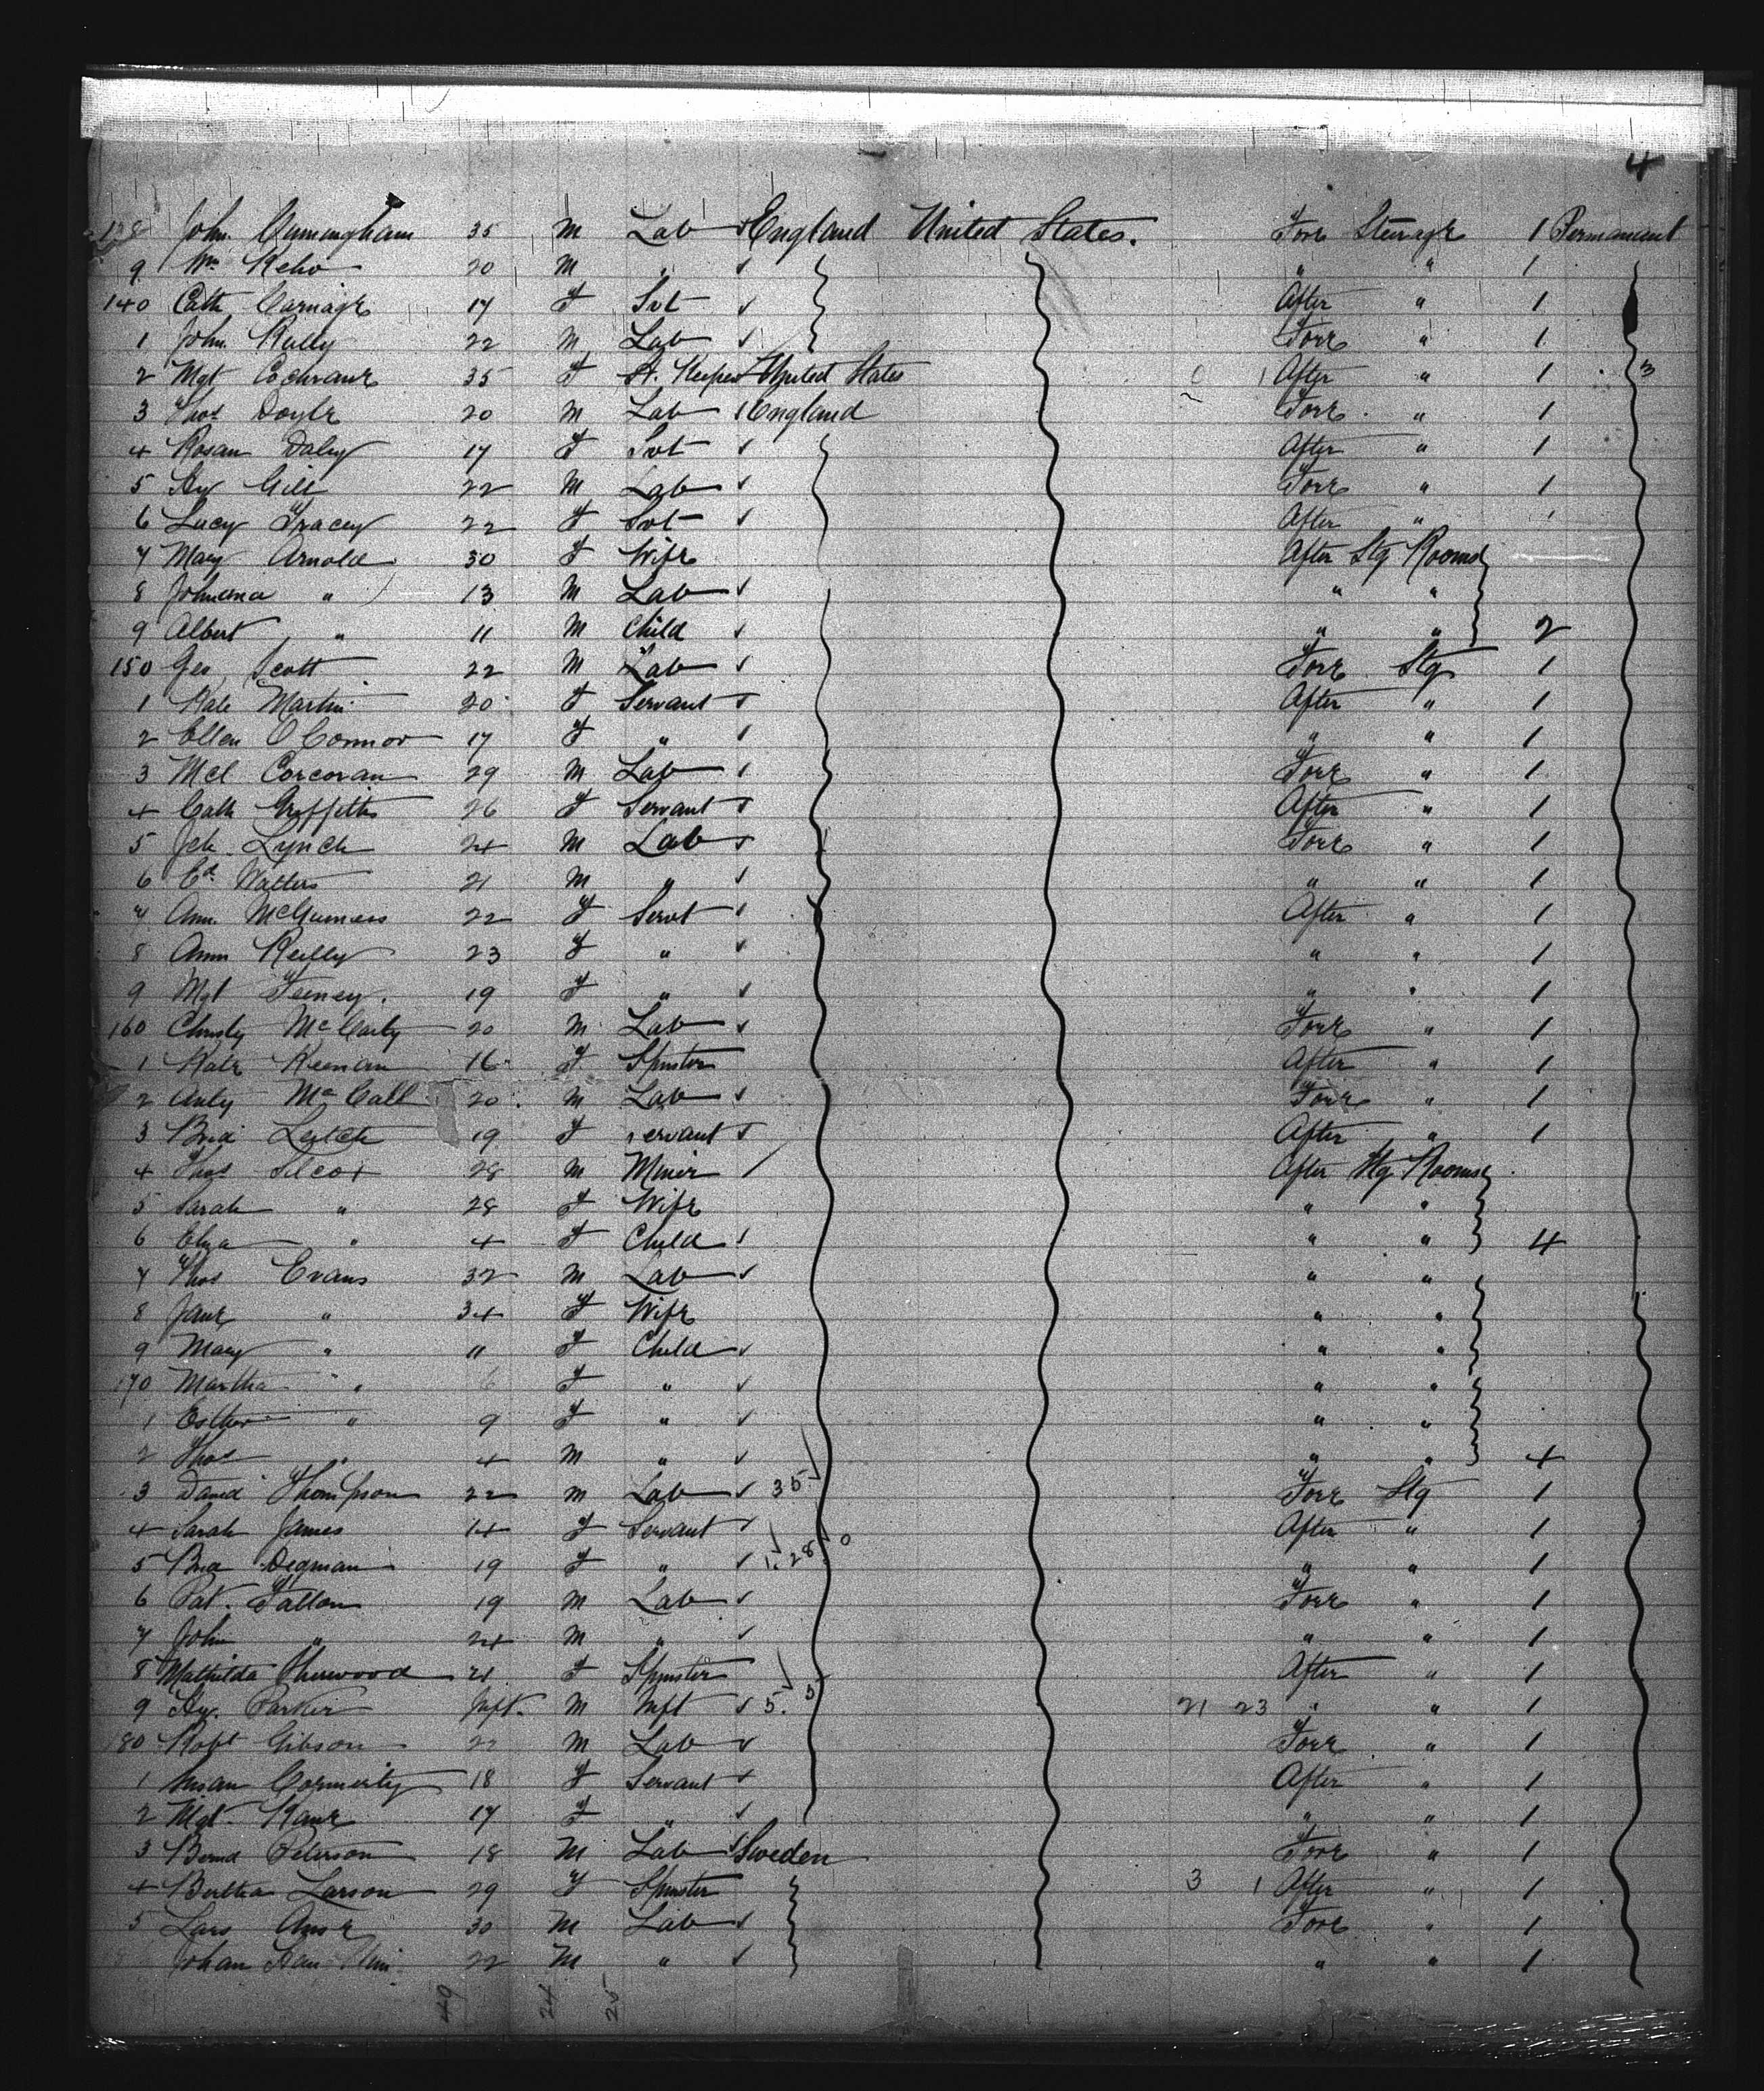 4
138 John Cunningham 35 M Lab England United States. Fore Steerage 1 Permanent
9 Wm Keho 20 M " " " 1
140 Cath Carnage 17 F Svt After " 1
1 John Kelly 22 M Lab Fore " 1
2 Mgt Cochrane 35 F H. Keeper United States 0 1 After " 1 3
3 Thos Doyle 20 M Lab England Fore " 1
4 Rosan Daley 17 F Svt After " 1
5 Hy Gill 22 M Lab Fore " 1
6 Lucy Tracey 22 F Svt After " 1
7 Mary Arnold 30 F Wife After Stg Rooms
8 Johnana " 13 M Lab " "
9 Albert " 11 M Child " " 2
150 Geo Scott 22 M Lab Fore Stg 1
1 Kate Martin 20 F Servant After " 1
2 Ellen O'Connor 17 F " " " 1
3 Mcl Corcoran 29 M Lab Fore " 1
4 Cath Griffiths 26 F Servant After " 1
5 Jch Lynch 24 M Lab Fore " 1
6 Ed Walters 21 M " " " 1
7 Ann McGuiness 22 F Servt After " 1
8 Ann Reilly 23 F " " " 1
9 Mgt Feeney. 19 F " " " 1
160 Christy McCarty 20 M Lab Fore " 1
1 Kate Keenan 16 F Spinster After " 1
2 Anty McCall 20 M Lab Fore " 1
3 Brid Leitch 19 F Servant After " 1
4 Thos Silcox 28 M Miner After Stg Rooms
5 Sarah " 28 F Wife " "
6 Eliza " 4 F Child " " 4
7 Thos Evans 32 M Lab " "
8 Jane " 34 F Wife " "
9 Mary " 11 F Child " "
170 Martha " 6 F " " "
1 Esther " 9 F " " "
2 Thos " 4 M " " " 4
3 David Thompson 22 M Lab 35 Fore Stg 1
4 Sarah James 14 F Servant After " 1
5 Brid Degman 19 F " 1. 28 0 " " 1
6 Pat. Fallon 19 M Lab Fore " 1
7 John " 24 M " " " 1
8 Mathilda Sherwood 21 F Spinster After " 1
9 Hy. Parker Inft. M Inft 5. 5 21 23 " " 1
180 Robt Gibson 22 M Lab Fore " 1
1 Susan Cormerty 18 F Servant After " 1
2 Mgt. Kane 17 F " " " 1
3 Bernd Peterson 18 M Lab Sweden Fore " 1
4 Bertha Larson 29 F Spinster 3 1 After " 1
5 Lars 30 M Lab Fore " 1
Johan 22 M " " " 1
49 24 25